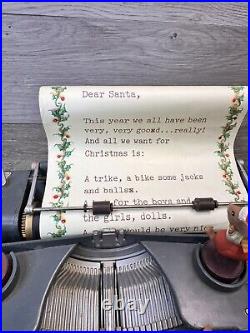 Dear Santa,
This year we all have been
very, very good...really!
And all we want for
Christmas is:
A trike, a bike some jacks
and balls.
for the boys and
the girls, dolls.
would be very nice